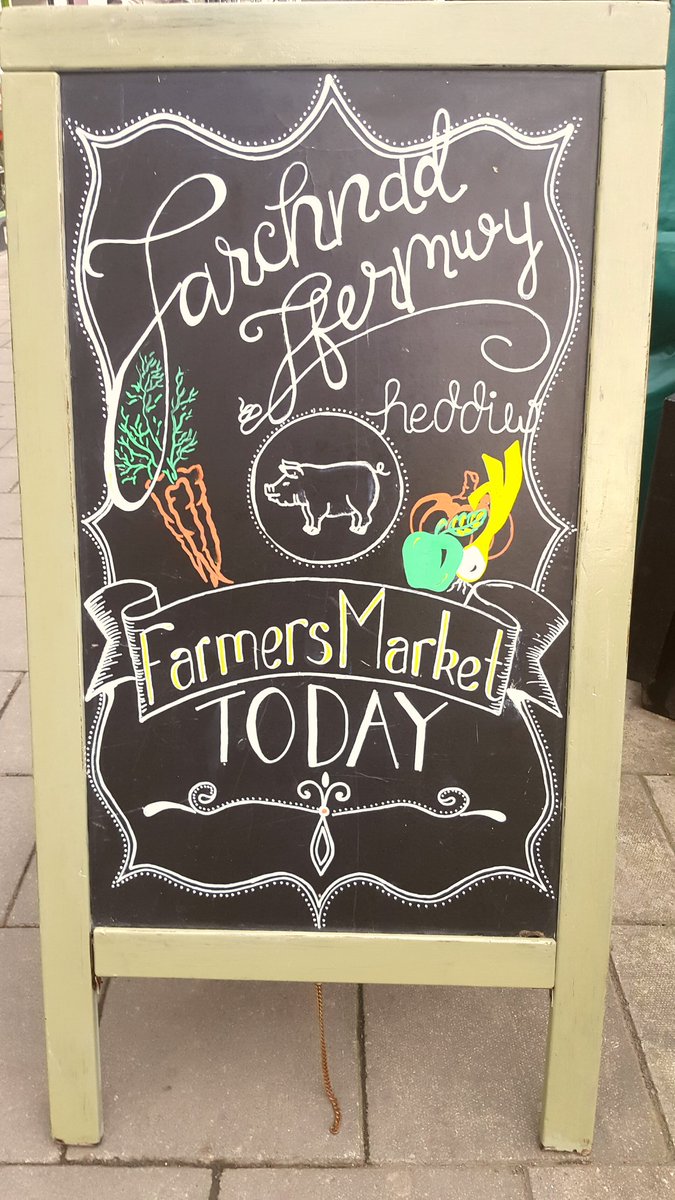 Farchnad
Ffermwy
heddiw
Farmers Market
TODAY